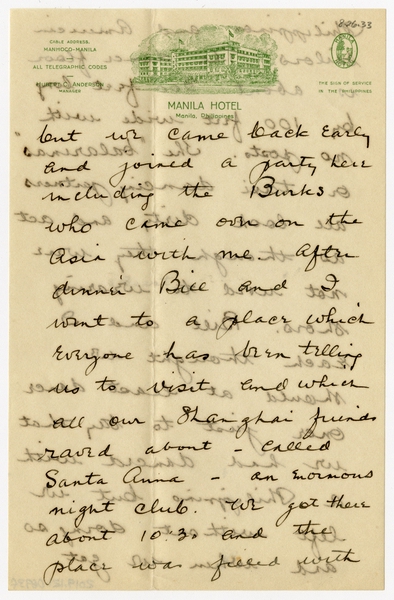 896.33
CABLE ADDRESS,
MANHOCO-MANILA
ALL TELEGRAPHIC CODES
ANDERSON
MANAGER
THE SIGN OF SERVICE
IN THE PHILIPPINES
MANILA HOTEL
Manila, Philippines
but we came back early
and joined a party here
including the Burks
who came over on the
Asia with me. After
dinner Bill and I
went to a place which
everyone has been telling
us to visit and which
all our Shanghai friends
raved about - called
Santa Anna - an enormous
night club. We got there
about 10:30 and the
place was filled with